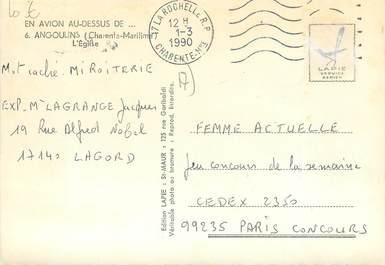 10 E
EN AVION AU-DESSUS DE ...
6. ANGOULINS (Charente-Maritime)
L'Église
17 LA ROCHELLE R.P
12 H
1-3
1990
CHARENTE-Mme
LAPIE
SERVICE
AERIEN
Mot caché. MIROITERIE
EXP. Mr LAGRANGE Jacques
19 Rue Alfred Nobel
17140 LAGORD
Edition LAPIE : St-MAUR : 125 rue Garibaldi
Véritable photo au bromure : Reprod. interdite.
FEMME ACTUELLE
Jeu concours de la semaine
CEDEX 2350
99235 PARIS CONCOURS